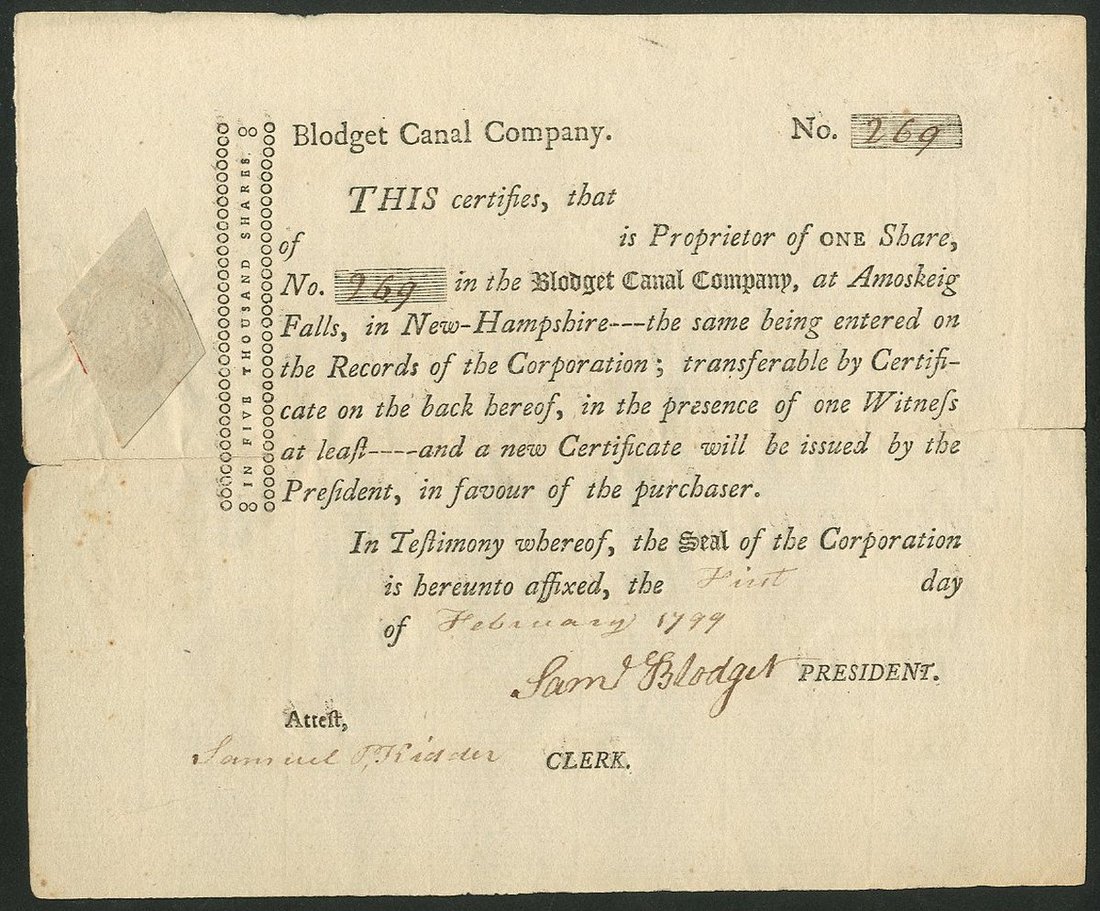 Blodget Canal Company. No. 269
THIS certifies, that
of is Proprietor of ONE Share,
No. 269 in the Blodget Canal Company, at Amoskeig
Falls, in New-Hampshire---the same being entered on
the Records of the Corporation; transferable by Certifi-
cate on the back hereof, in the presence of one Witneſs
at leaſt----and a new Certificate will be issued by the
Preſident, in favour of the purchaser.
In Teſtimony whereof, the Seal of the Corporation
is hereunto affixed, the First day
of February 1799
Saml Blodget PRESIDENT.
Atteſt,
Samuel P. Kidder CLERK.
IN FIVE THOUSAND SHARES.